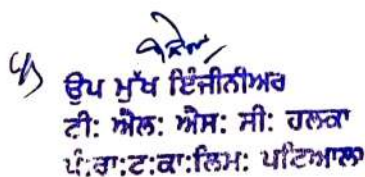 ਉਪ ਮੁੱਖ ਇੰਜੀਨੀਅਰ
ਟੀ: ਐਲ: ਐਸ: ਸੀ: ਹਲਕਾ
ਪੰ:ਰਾ:ਟ:ਕਾ:ਲਿਮ: ਪਟਿਆਲਾ